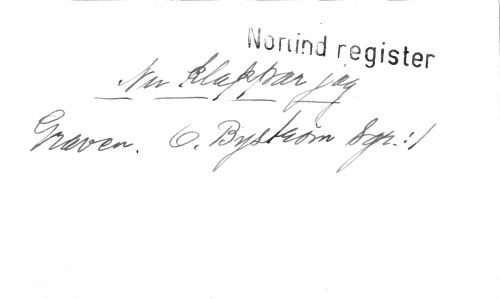 Norlind register
Nu klappar jag
Graven. O. Byström Sgr.:1